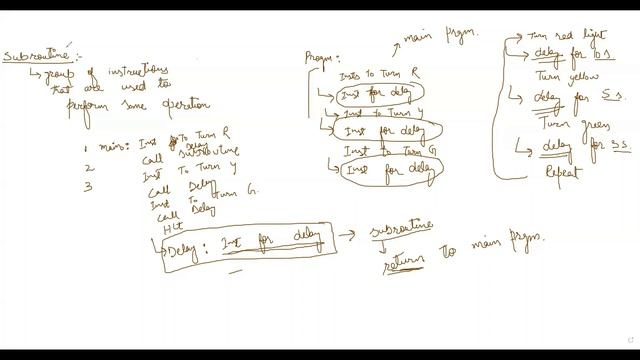 Subroutine :-
↳ group of instructions
that are used to
perform same operation
1 main: Inst To Turn R
Call Subroutine
Delay
2 Inst To Turn Y
3 Call Delay
Inst To Turn G.
Call Delay
Hlt
Delay : Inst for delay → subroutine
↓
return to main prgm.
Progm :
main prgm.
Insts to Turn R
Inst for delay
Inst to Turn Y
Inst for delay
Inst to Turn G
Inst for delay
Turn red light
delay for
Turn yellow
delay for 5s.
Turn green
delay for
Repeat